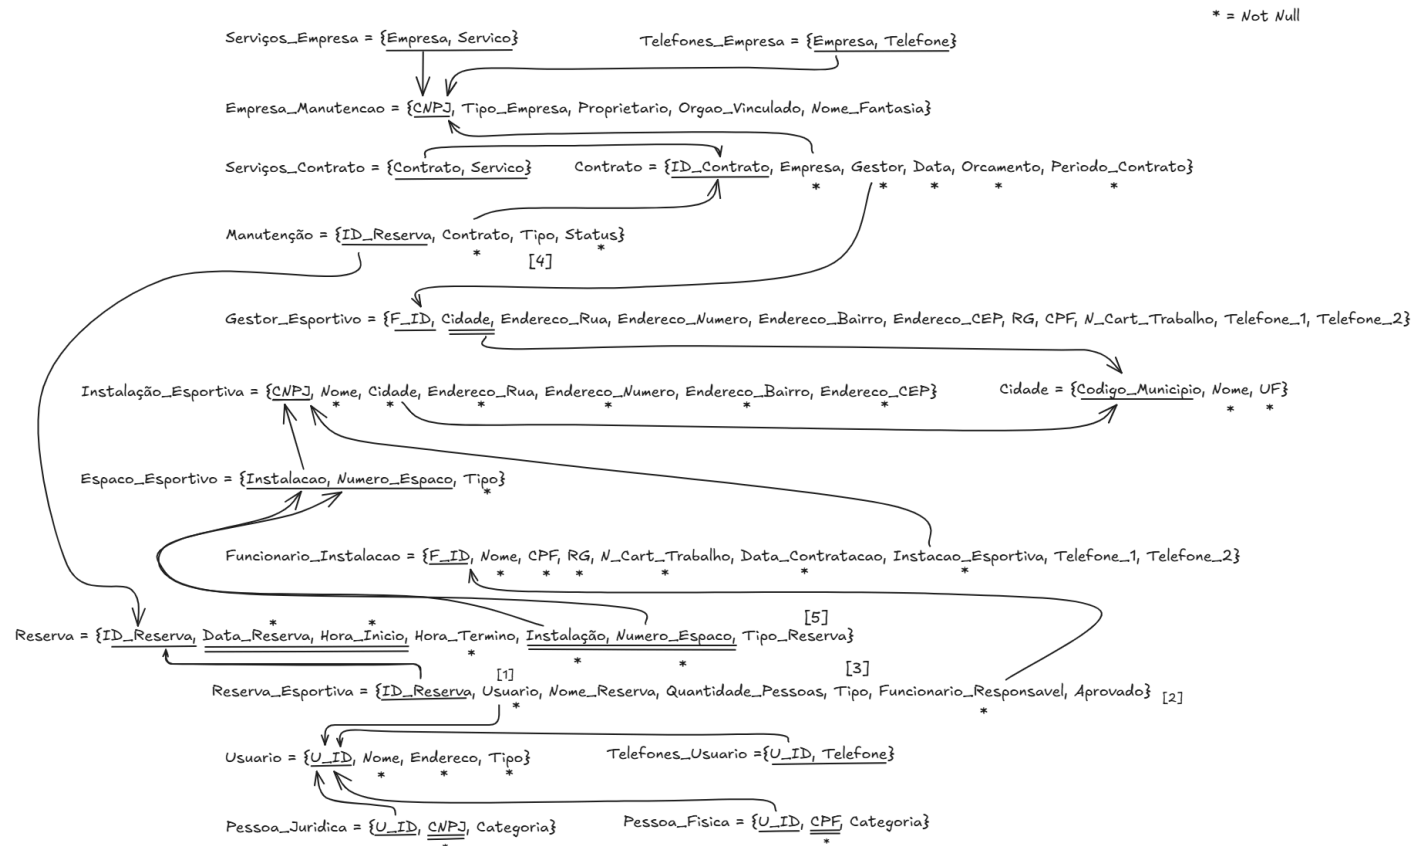 * = Not Null
Serviços_Empresa = {Empresa, Servico} Telefones_Empresa = {Empresa, Telefone}
Empresa_Manutencao = {CNPJ, Tipo_Empresa, Proprietario, Orgao_Vinculado, Nome_Fantasia}
Serviços_Contrato = {Contrato, Servico} Contrato = {ID_Contrato, Empresa, Gestor, Data, Orcamento, Periodo_Contrato}
* * * * *
Manutenção = {ID_Reserva, Contrato, Tipo, Status}
* [4] *
Gestor_Esportivo = {F_ID, Cidade, Endereco_Rua, Endereco_Numero, Endereco_Bairro, Endereco_CEP, RG, CPF, N_Cart_Trabalho, Telefone_1, Telefone_2}
Instalação_Esportiva = {CNPJ, Nome, Cidade, Endereco_Rua, Endereco_Numero, Endereco_Bairro, Endereco_CEP} Cidade = {Codigo_Municipio, Nome, UF}
* * * * * * * *
Espaco_Esportivo = {Instalacao, Numero_Espaco, Tipo}
*
Funcionario_Instalacao = {F_ID, Nome, CPF, RG, N_Cart_Trabalho, Data_Contratacao, Instacao_Esportiva, Telefone_1, Telefone_2}
* * * * * *
* * [5]
Reserva = {ID_Reserva, Data_Reserva, Hora_Inicio, Hora_Termino, Instalação, Numero_Espaco, Tipo_Reserva}
* * *
[1] [3]
Reserva_Esportiva = {ID_Reserva, Usuario, Nome_Reserva, Quantidade_Pessoas, Tipo, Funcionario_Responsavel, Aprovado} [2]
* *
Usuario = {U_ID, Nome, Endereco, Tipo} Telefones_Usuario ={U_ID, Telefone}
* * *
Pessoa_Juridica = {U_ID, CNPJ, Categoria} Pessoa_Fisica = {U_ID, CPF, Categoria}
* *